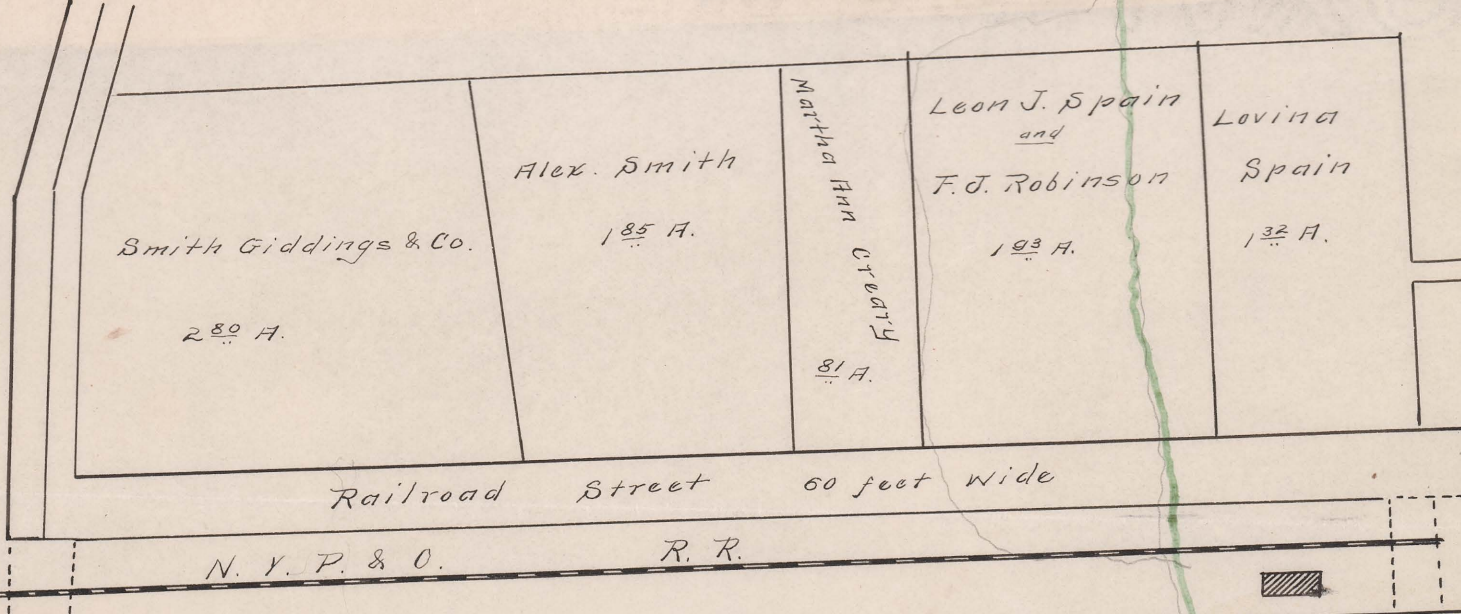 Smith Giddings & Co.
2 80 A.
Alex. Smith
1 85 A.
Martha Ann Creary
81 A.
Leon J. Spain
and
F. J. Robinson
1 93 A.
Lovina
Spain
1 32 A.
Railroad Street 60 feet Wide
N. Y. P. & O. R. R.